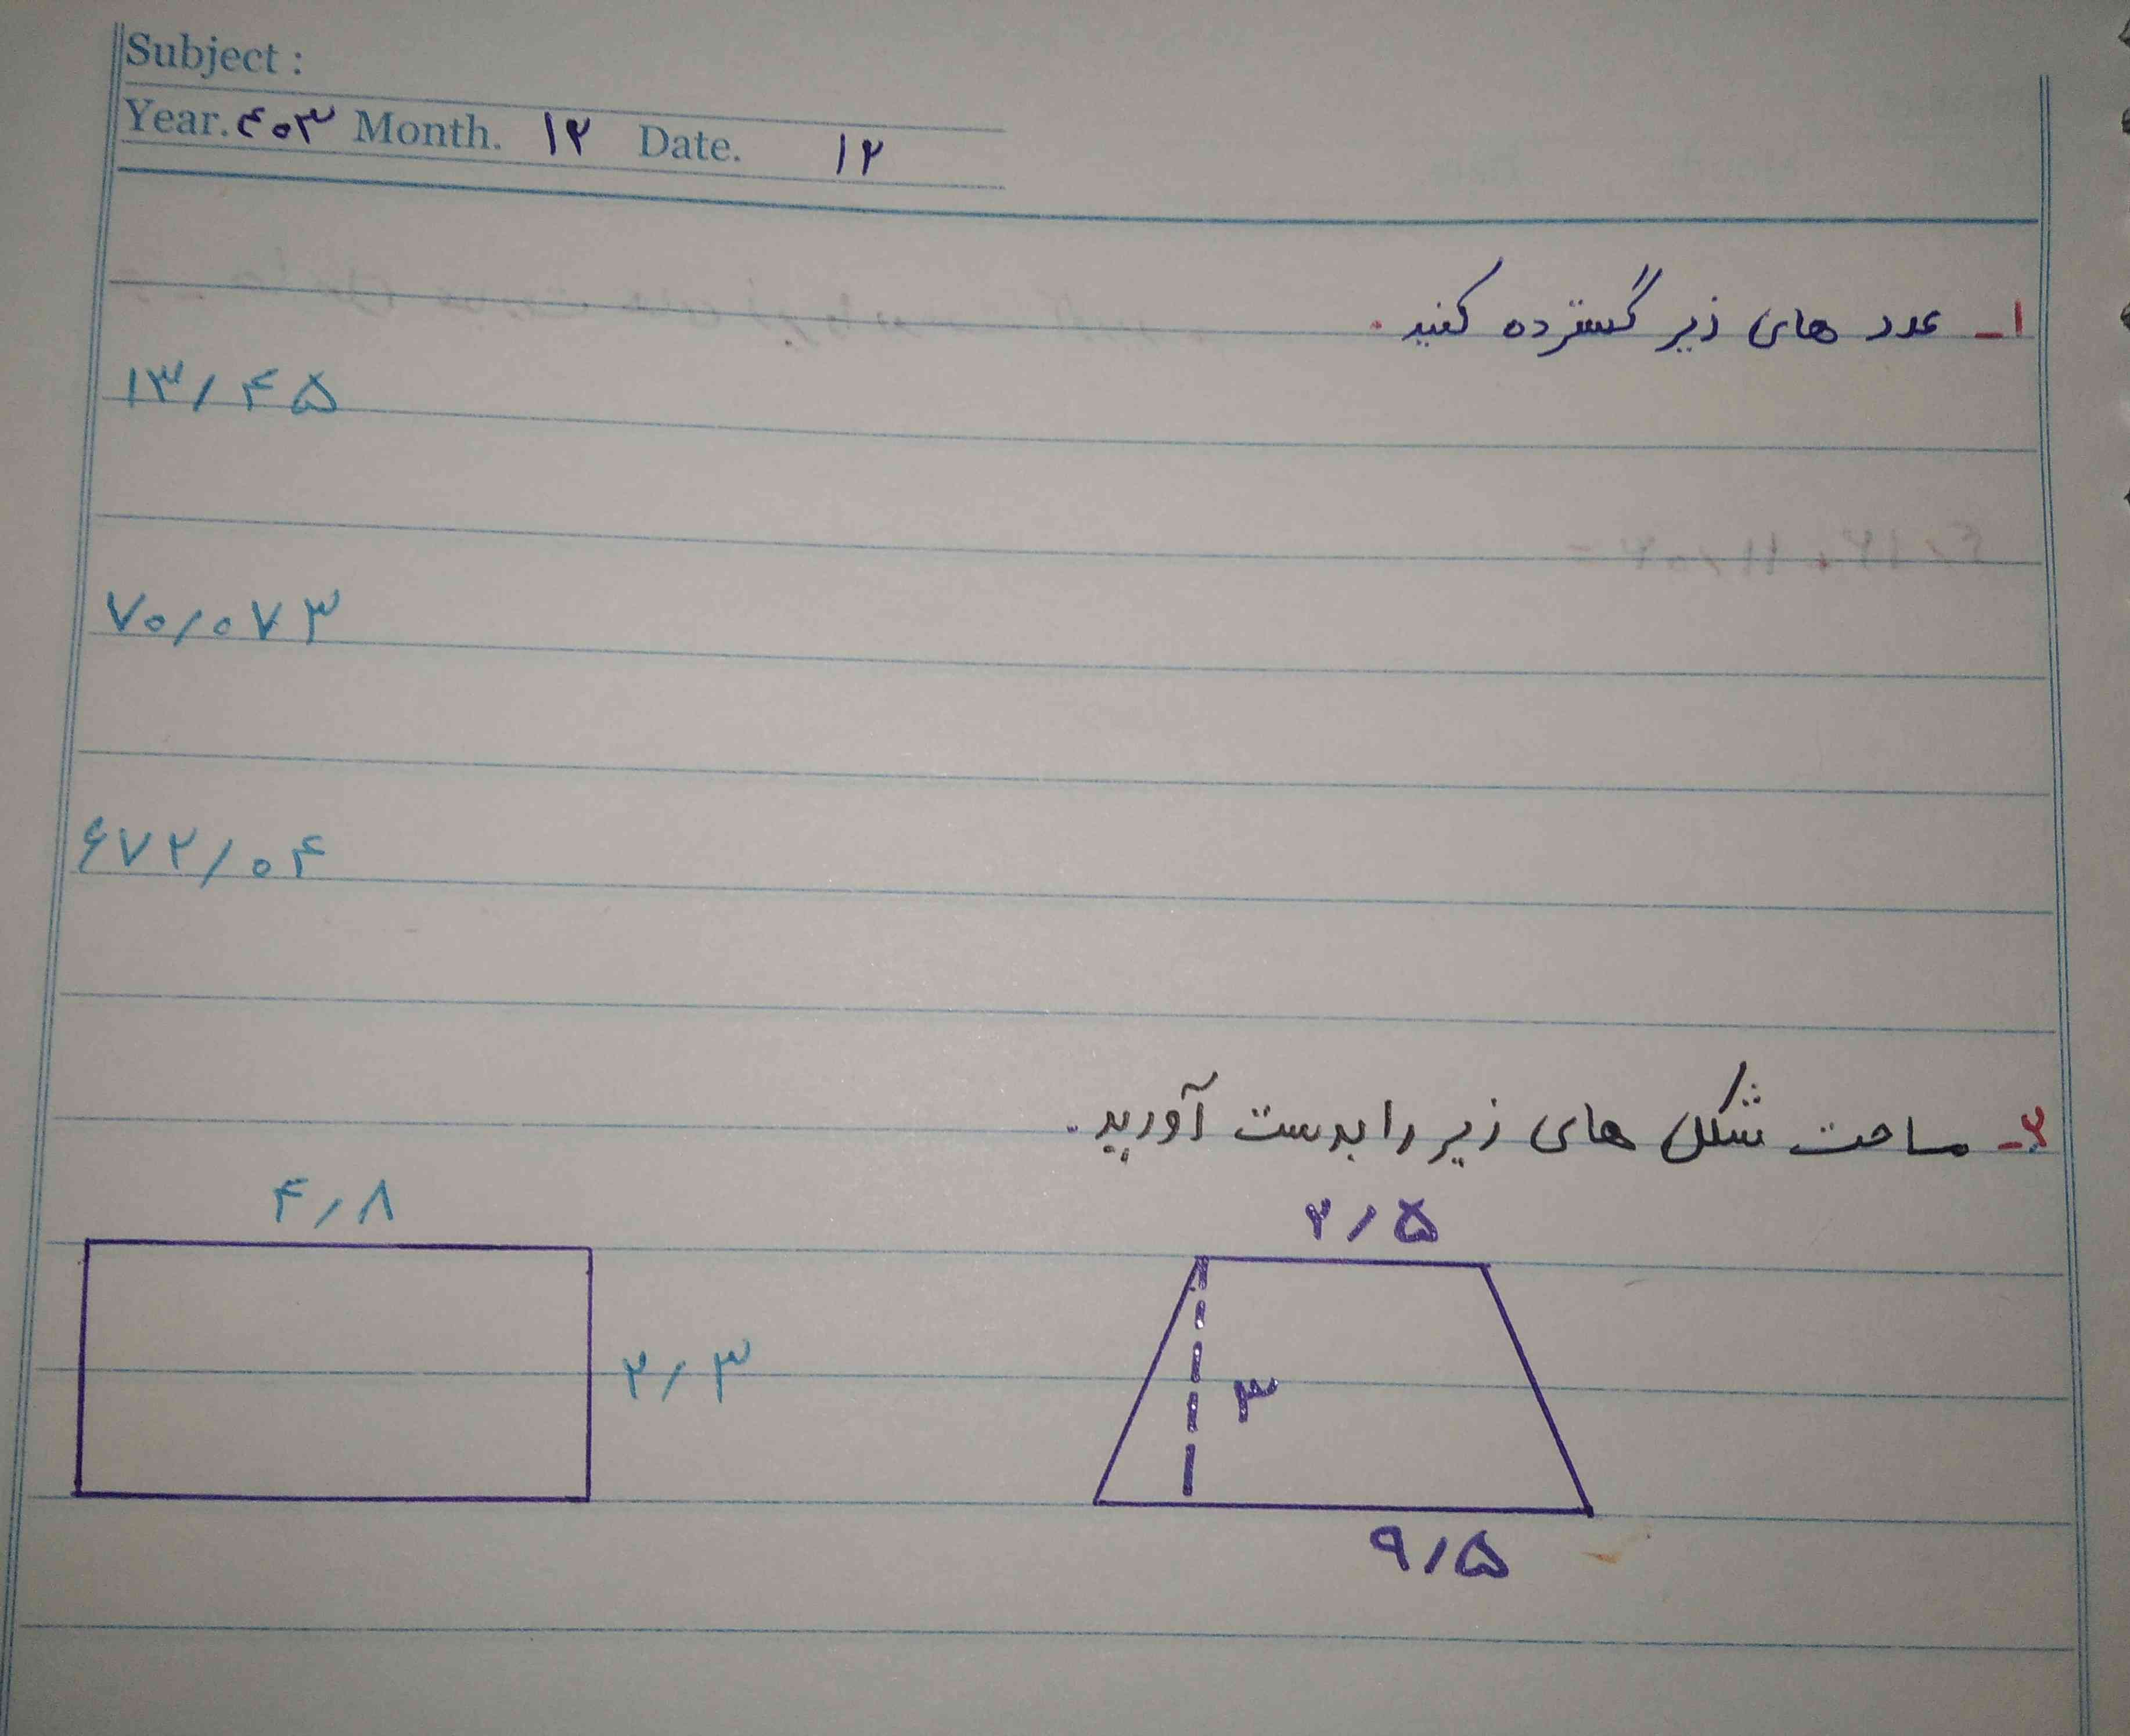 Subject :
Year. ۴۰۳ Month. ۱۲ Date. ۱۲
۱- عدد های زیر گسترده کنید.
۱۳/۴۵
۷۰/۰۷۳
۶۷۲/۰۴
۲- مساحت شکل های زیر را بدست آورید.
۴/۸
۲/۵
۲/۳
۳
۹/۵